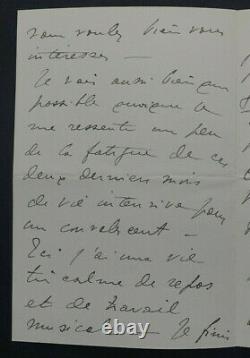 vous voulez bien vous
intéresser —
Je vais aussi bien que
possible quoique je
me ressente un peu
de la fatigue de ces
deux derniers mois
de vie intensive pour
un convalescent —
Ici j'ai une vie
très calme de repos
et de travail
musical — Je finis